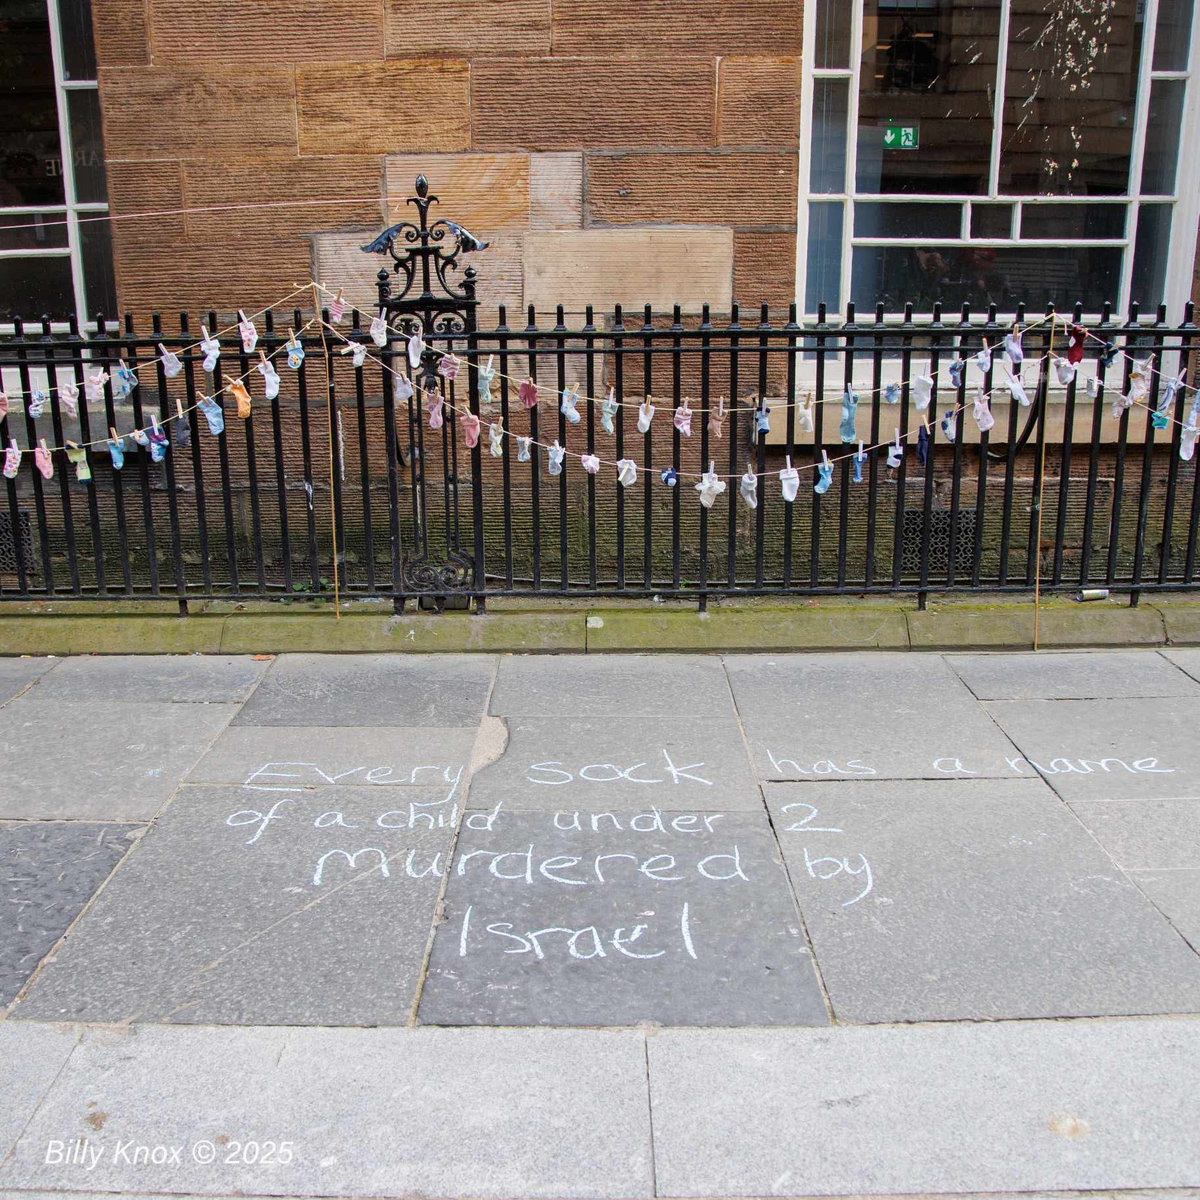 Every sock has a name
of a child under 2
murdered by
Israel
Billy Knox © 2025